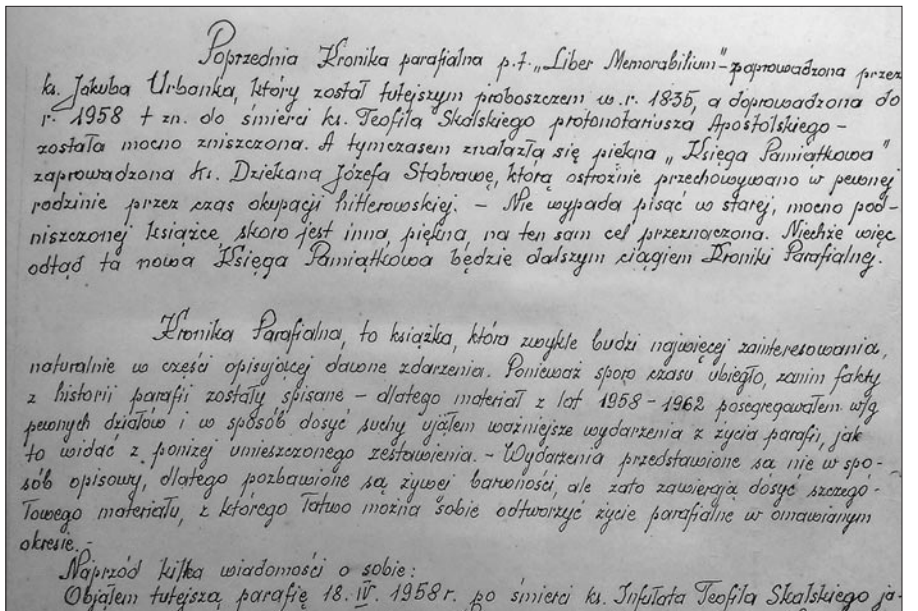 Poprzednia Kronika parafialna p.t. „Liber Memorabilium” - zaprowadzona przez
ks. Jakuba Urbanka, który został tutejszym proboszczem w.r. 1835, a doprowadzona do
r. 1958 t zn. do śmierci ks. Teofila Skalskiego protonotariusza Apostolskiego -
została mocno zniszczona. A tymczasem znalazła się piękna „Księga Pamiątkowa”
zaprowadzona ks. Dziekana Józefa Stabrawę, którą ostrożnie przechowywano w pewnej
rodzinie przez czas okupacji hitlerowskiej. - Nie wypada pisać w starej, mocno pod-
niszczonej książce, skoro jest inna, piękna, na ten sam cel przeznaczona. Niechże więc
odtąd ta nowa Księga Pamiątkowa będzie dalszym ciągiem Kroniki Parafialnej.
Kronika Parafialna, to książka, która zwykle budzi najwięcej zainteresowania,
naturalnie w części opisującej dawne zdarzenia. Ponieważ sporo czasu ubiegło, zanim fakty
z historii parafii zostały spisane - dlatego materiał z lat 1958 - 1962 posegregowałem w/g
pewnych działów i w sposób dosyć suchy ująłem ważniejsze wydarzenia z życia parafii, jak
to widać z poniżej umieszczonego zestawienia. - Wydarzenia przedstawione są nie w spo-
sób opisowy, dlatego pozbawione są żywej barwności, ale zato zawierają dosyć szczegó-
łowego materiału, z którego łatwo można sobie odtworzyć życie parafialne w omawianym
okresie. -
Naprzód kilka wiadomości o sobie:
Objąłem tutejszą parafię 18. IV. 1958 r. po śmierci ks. Infułata Teofila Skalskiego ja-